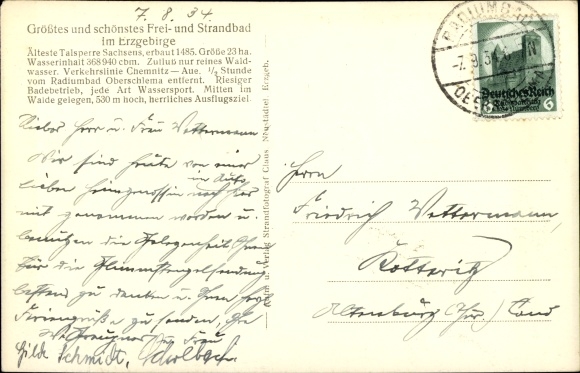 7. 8. 34.
Größtes und schönstes Frei- und Strandbad
im Erzgebirge
Älteste Talsperre Sachsens, erbaut 1485. Größe 23 ha.
Wasserinhalt 368 940 cbm. Zufluß nur reines Wald-
wasser. Verkehrslinie Chemnitz—Aue. 1/2 Stunde
vom Radiumbad Oberschlema entfernt. Riesiger
Badebetrieb, jede Art Wassersport. Mitten im
Walde gelegen, 530 m hoch, herrliches Ausflugsziel.
Liebes Herr u. Frau Wettermann
Wir sind heute von einer
lieben Heimgenossin im Auto nach hier
mit genommen worden u.
benutzen die Gelegenheit Ihnen
für die
bestens zu danken u. Ihnen
Feriengrüße zu senden, Ihr
Frau
Hilde Schmidt,
Verlag Strandfotograf Claus, Neustädtel Erzgeb.
RADIUMBAD
-7.8.34
Deutsches Reich
6 6
Herrn
Friedrich Wettermann,
Kotteritz
Altenburg (Thür) Land